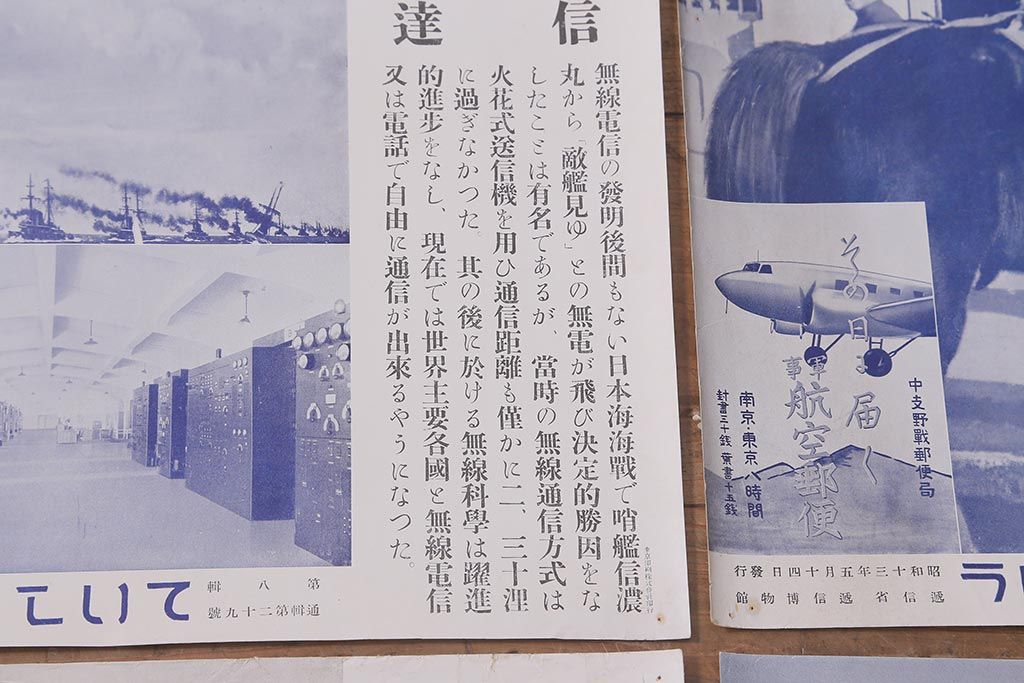 信達
無線電信の發明後間もない日本海海戰で哨艦信濃
丸から「敵艦見ゆ」との無電が飛び決定的勝因をな
したことは有名であるが、當時の無線通信方式は
火花式送信機を用ひ通信距離も僅かに二、三十浬
に過ぎなかつた。其の後に於ける無線科學は躍進
的進步をなし、現在では世界主要各國と無線電信
又は電話で自由に通信が出來るやうになつた。
東京印刷株式會社印行
ていこ
第八輯
通輯第二十九號
その日に届く
軍事航空郵便
中支野戰郵便局
南京・東京八時間
封書三十錢 葉書十五錢
昭和十三年五月十四日發行
遞信省 遞信博物館